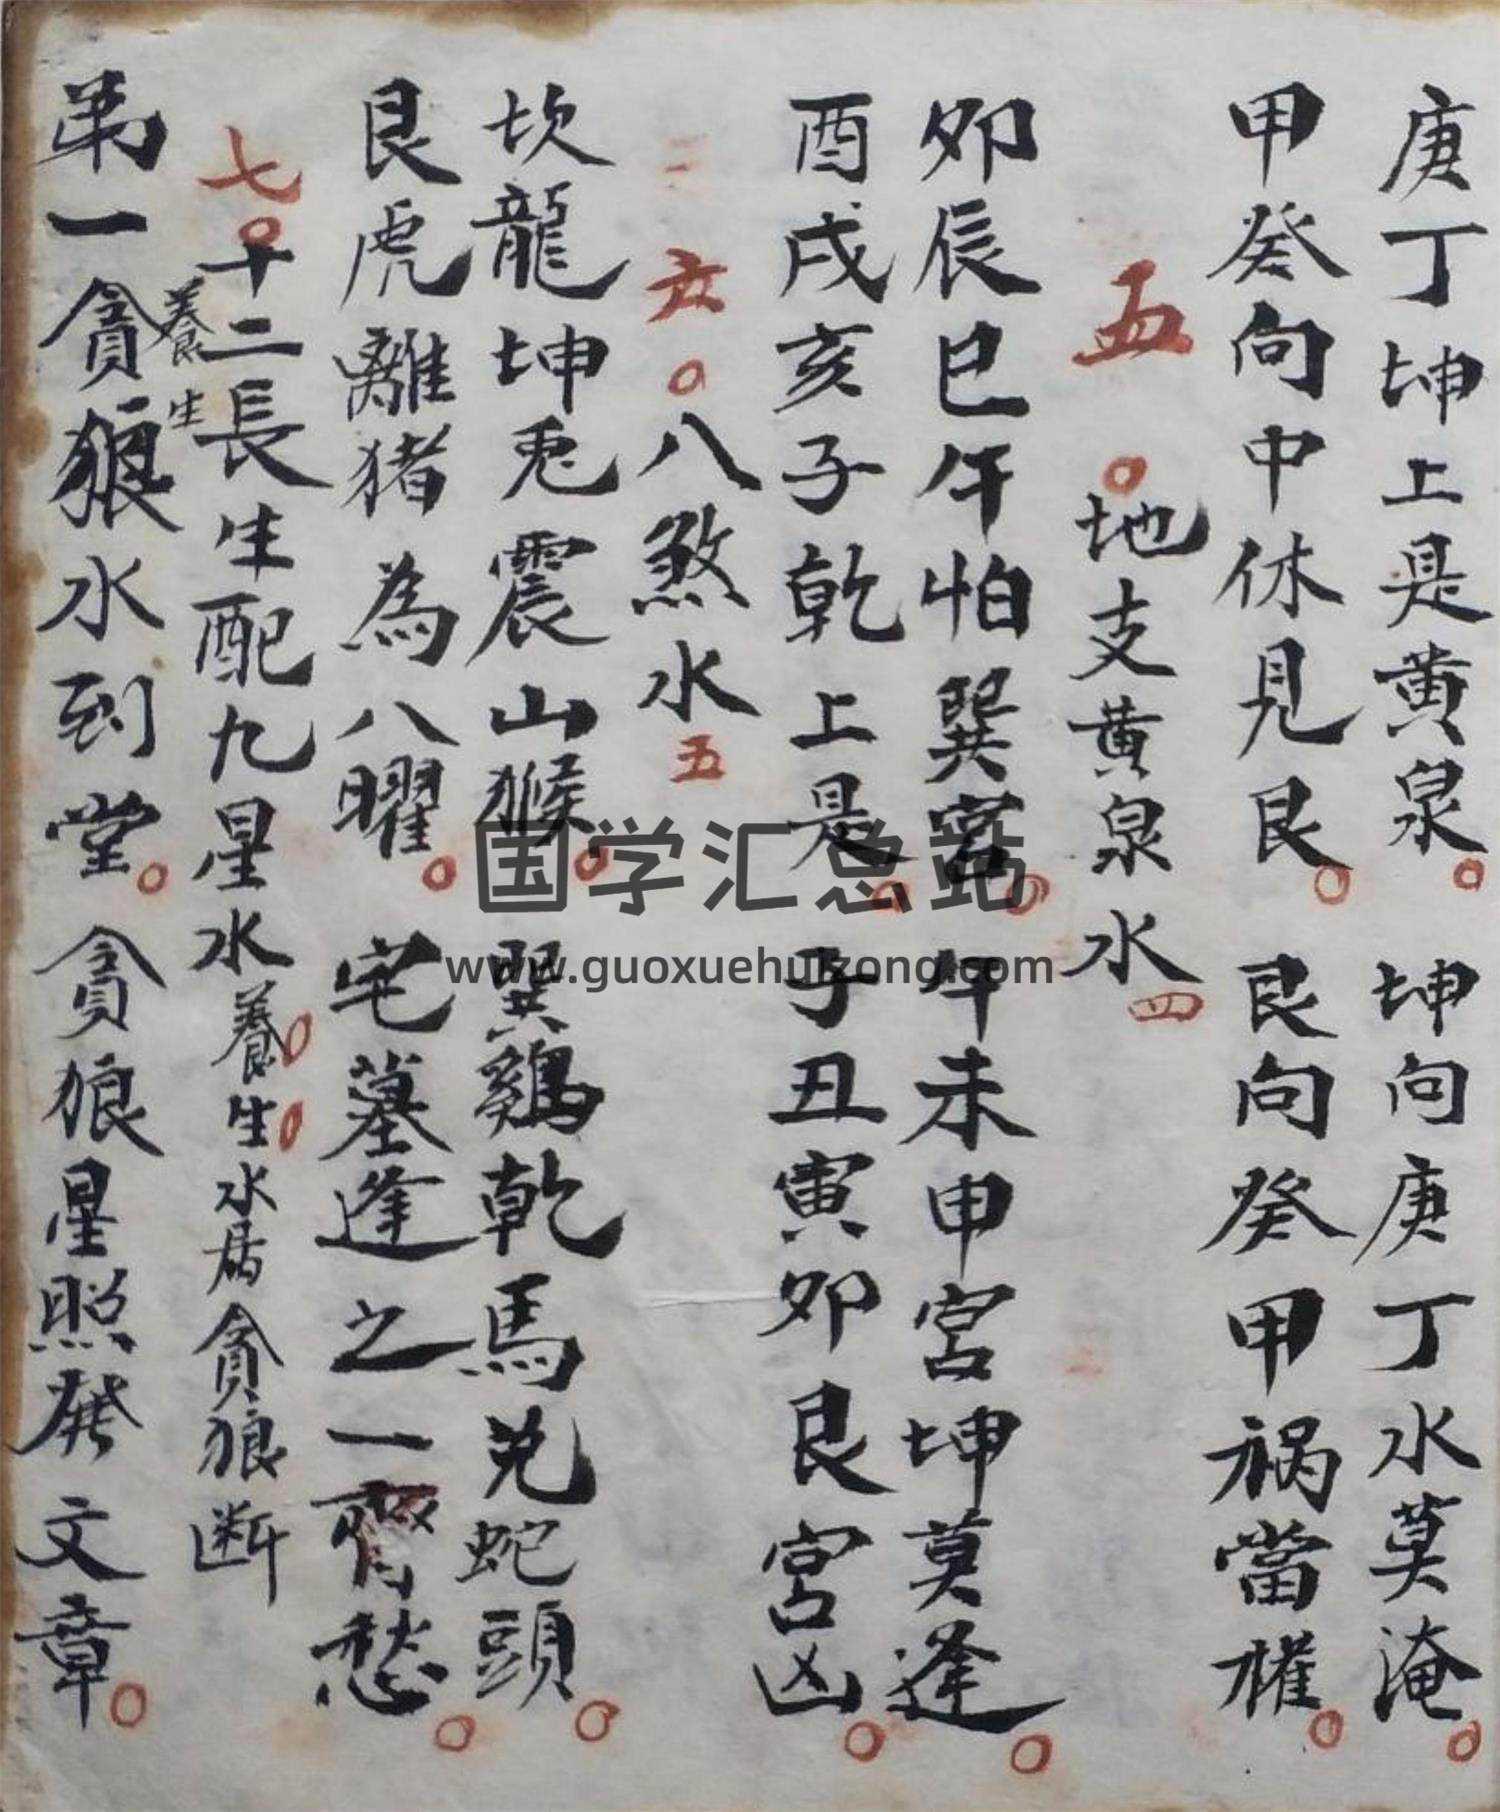 庚丁坤上是黄泉 坤向庚丁水莫淹
甲癸向中休见艮 艮向癸甲祸當權
五 地支黄泉水 四
卯辰巳午怕巽宫 午未申宫坤莫逢
酉戌亥子乾上是 子丑寅卯艮宫凶
三 六 八煞水 五
坎龍坤兎震山猴 巽鷄乾馬兑蛇頭
艮虎離猪為八曜 宅墓逢之一齊愁
七 十二長生配九星水 養生水居貪狼断
養生
弟一貪狼水到堂 貪狼星照発文章
国学汇总站
www.guoxuehuizong.com